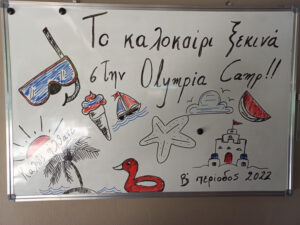 Το καλοκαίρι ξεκινά
στην Olympia Camp!!
Β' περίοδος 2022